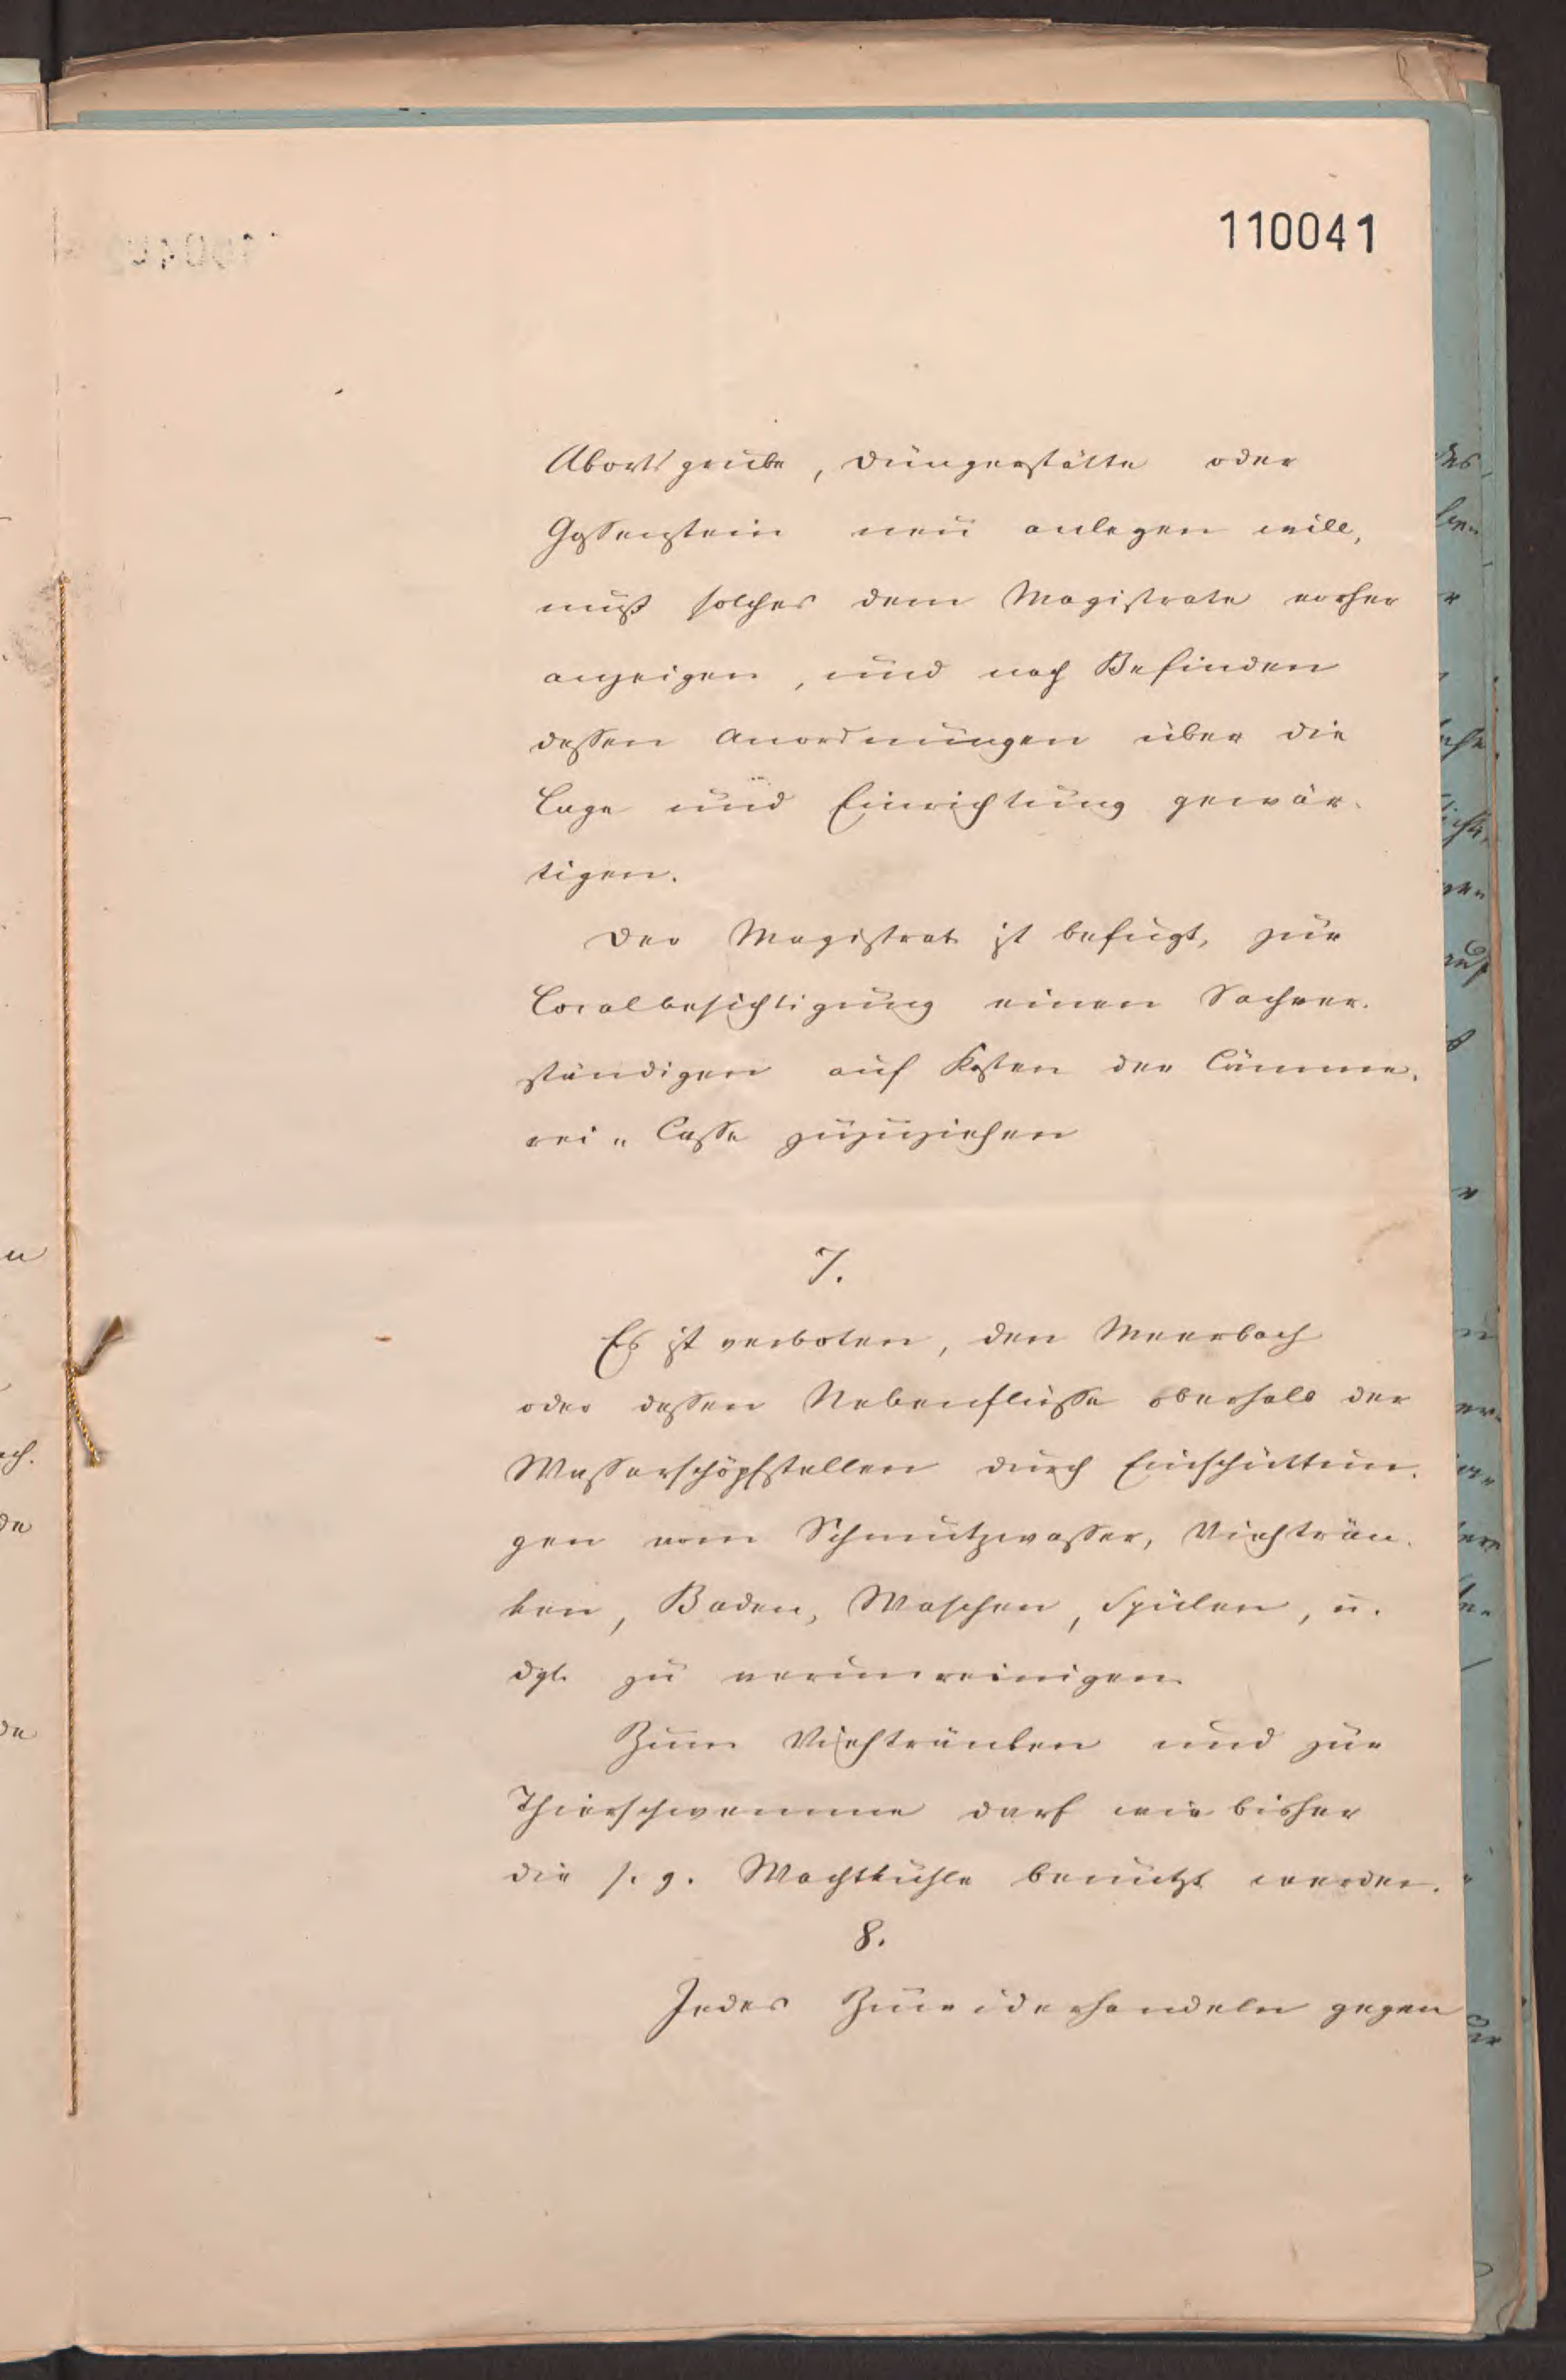 110041
Abortsgrube, Düngerstätte oder
Gossenstein neu anlegen will,
muß solches dem Magistrate vorher
anzeigen, und nach Befinden
dessen Anordnungen über die
Lage und Einrichtung gewär-
tigen.
Der Magistrat ist befugt, zur
Localbesichtigung einen Sachver-
ständigen auf Kosten der Cämme-
rei-Casse zuzuziehen
7.
Es ist verboten, den Meerbach
oder dessen Nebenflüsse oberhalb der
Wasserschöpfstellen durch Einschüttun-
gen vom Schmutzwasser, Viehträn-
ken, Baden, Waschen, Spülen, u.
dgl. zu verunreinigen
Zum Viehtränken und zur
Thierschwemme darf wie bisher
die s. g. Wachtkuhle benutzt werden.
8.
Jedes Zuwiderhandeln gegen